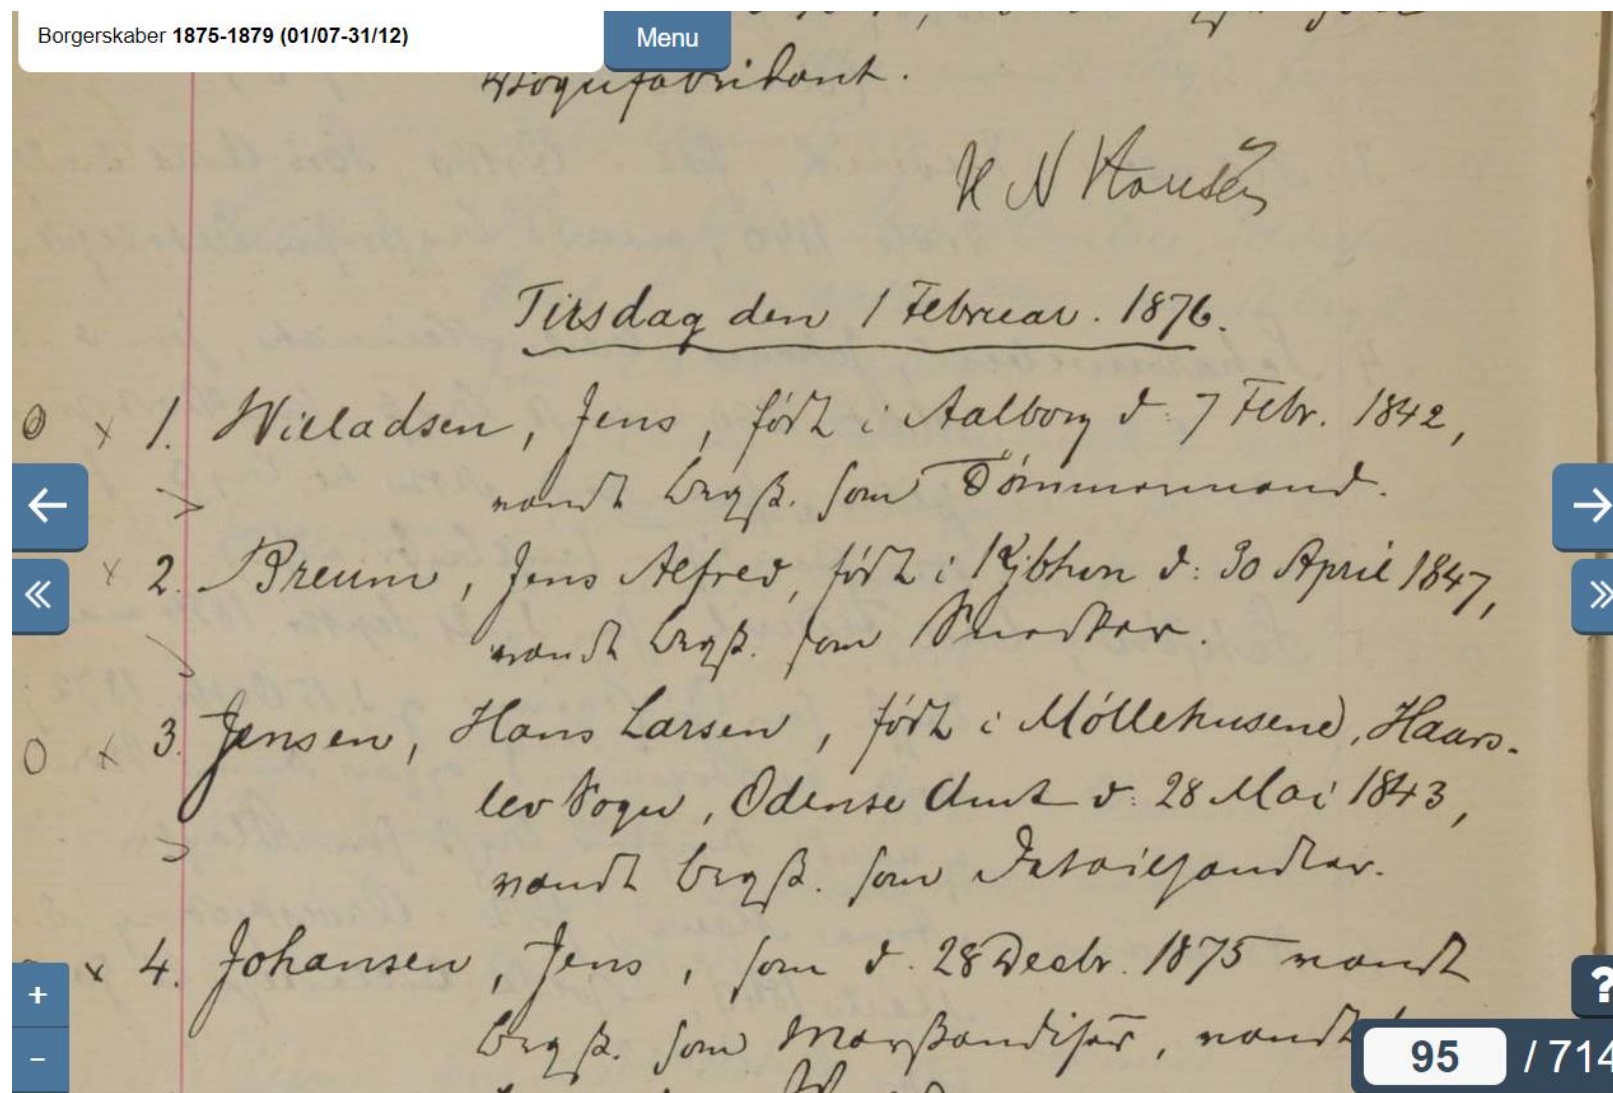 Borgerskaber 1875-1879 (01/07-31/12)
Menu
Vognfabrikant.
H N Hansen
Tirsdag den 1 Februar. 1876.
1. Willadsen, Jens, født i Aalborg d: 7 Febr. 1842,
vandt brgsk. som Tömmermand.
2. Breum, Jens Alfred, født i Kjbhvn d: 30 April 1847,
vandt brgsk. som Snedker.
3. Jensen, Hans Larsen, født i Möllehusene, Haars-
lev Sogn, Odense Amt d: 28 Mai 1843,
vandt brgsk. som Detailhandler.
4. Johansen, Jens, som d. 28 Decbr. 1875 vandt
brgsk. som Marskandiser, vandt
95 / 714